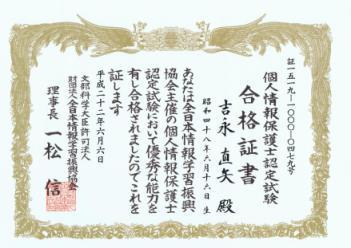 証一五一九-一〇〇〇-〇四七九号
個人情報保護士認定試験
合格証書
吉永直矢 殿
昭和四十八年六月十六日 生
あなたは全日本情報学習振興
協会主催の個人情報保護士
認定試験において優秀な能力を
有し合格されましたのでこれを
証します
平成二十二年六月六日
文部科学大臣許可法人
財団法人全日本情報学習振興協会
理事長 一松 信